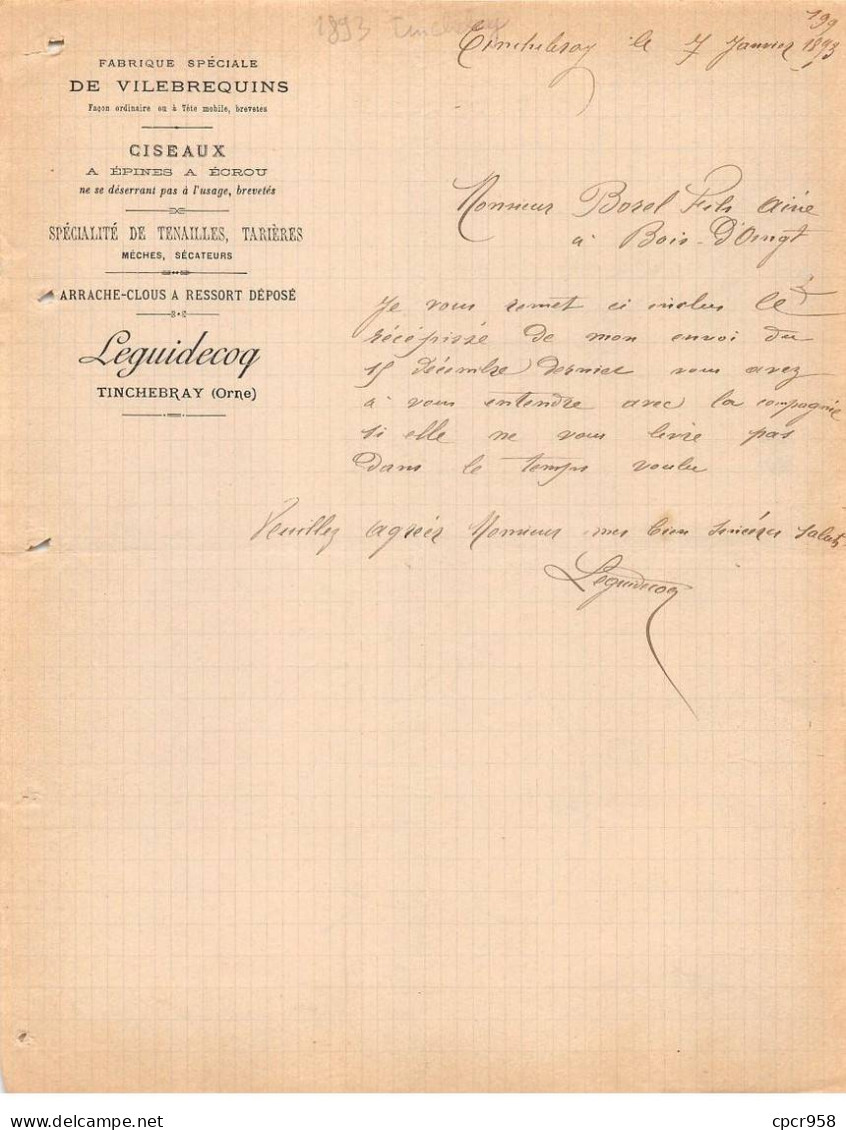 1893 Tinchebray
199
Tinchebray le 7 Janvier 1893
FABRIQUE SPÉCIALE
DE VILEBREQUINS
Façon ordinaire ou à Tête mobile, brevetés
CISEAUX
A ÉPINES A ÉCROU
ne se déserrant pas à l'usage, brevetés
SPÉCIALITÉ DE TENAILLES, TARIÈRES
MÈCHES, SÉCATEURS
ARRACHE-CLOUS A RESSORT DÉPOSÉ
Leguidecoq
TINCHEBRAY (Orne)
Monsieur Borel Fils ainé
à Bois-D'Oingt
Je vous remet ci inclus le
récépissé de mon envoi du
15 décembre dernier vous avez
à vous entendre avec la compagnie
si elle ne vous livre pas
dans le temps voulu
Veuillez agréer Monsieur mes bien sincères saluts
Leguidecoq
cpcr958